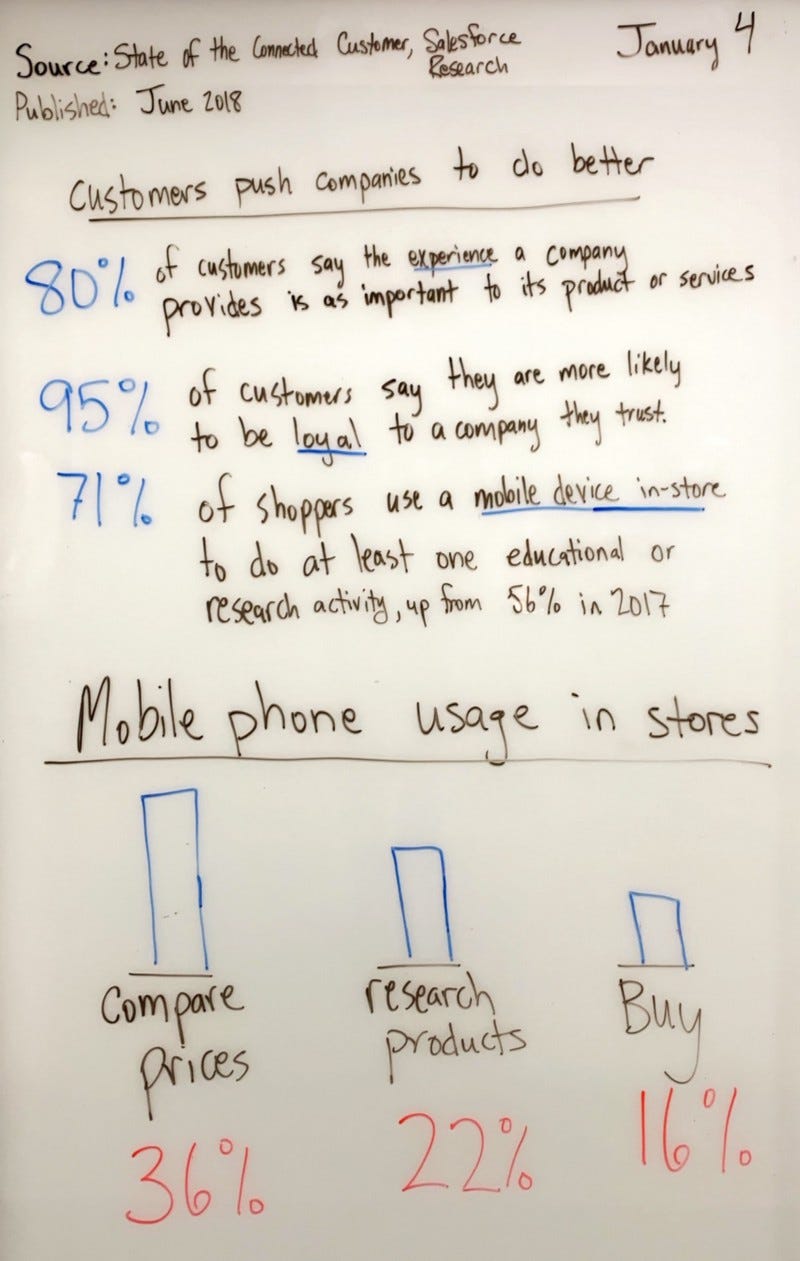 Source: State of the Connected Customer, Salesforce Research
January 4
Published: June 2018
Customers push companies to do better
80% of customers say the experience a company
provides is as important to its product or services
95% of customers say they are more likely
to be loyal to a company they trust.
71% of shoppers use a mobile device in-store
to do at least one educational or
research activity, up from 56% in 2017
Mobile phone usage in stores
Compare prices
research products
Buy
36%
22%
16%